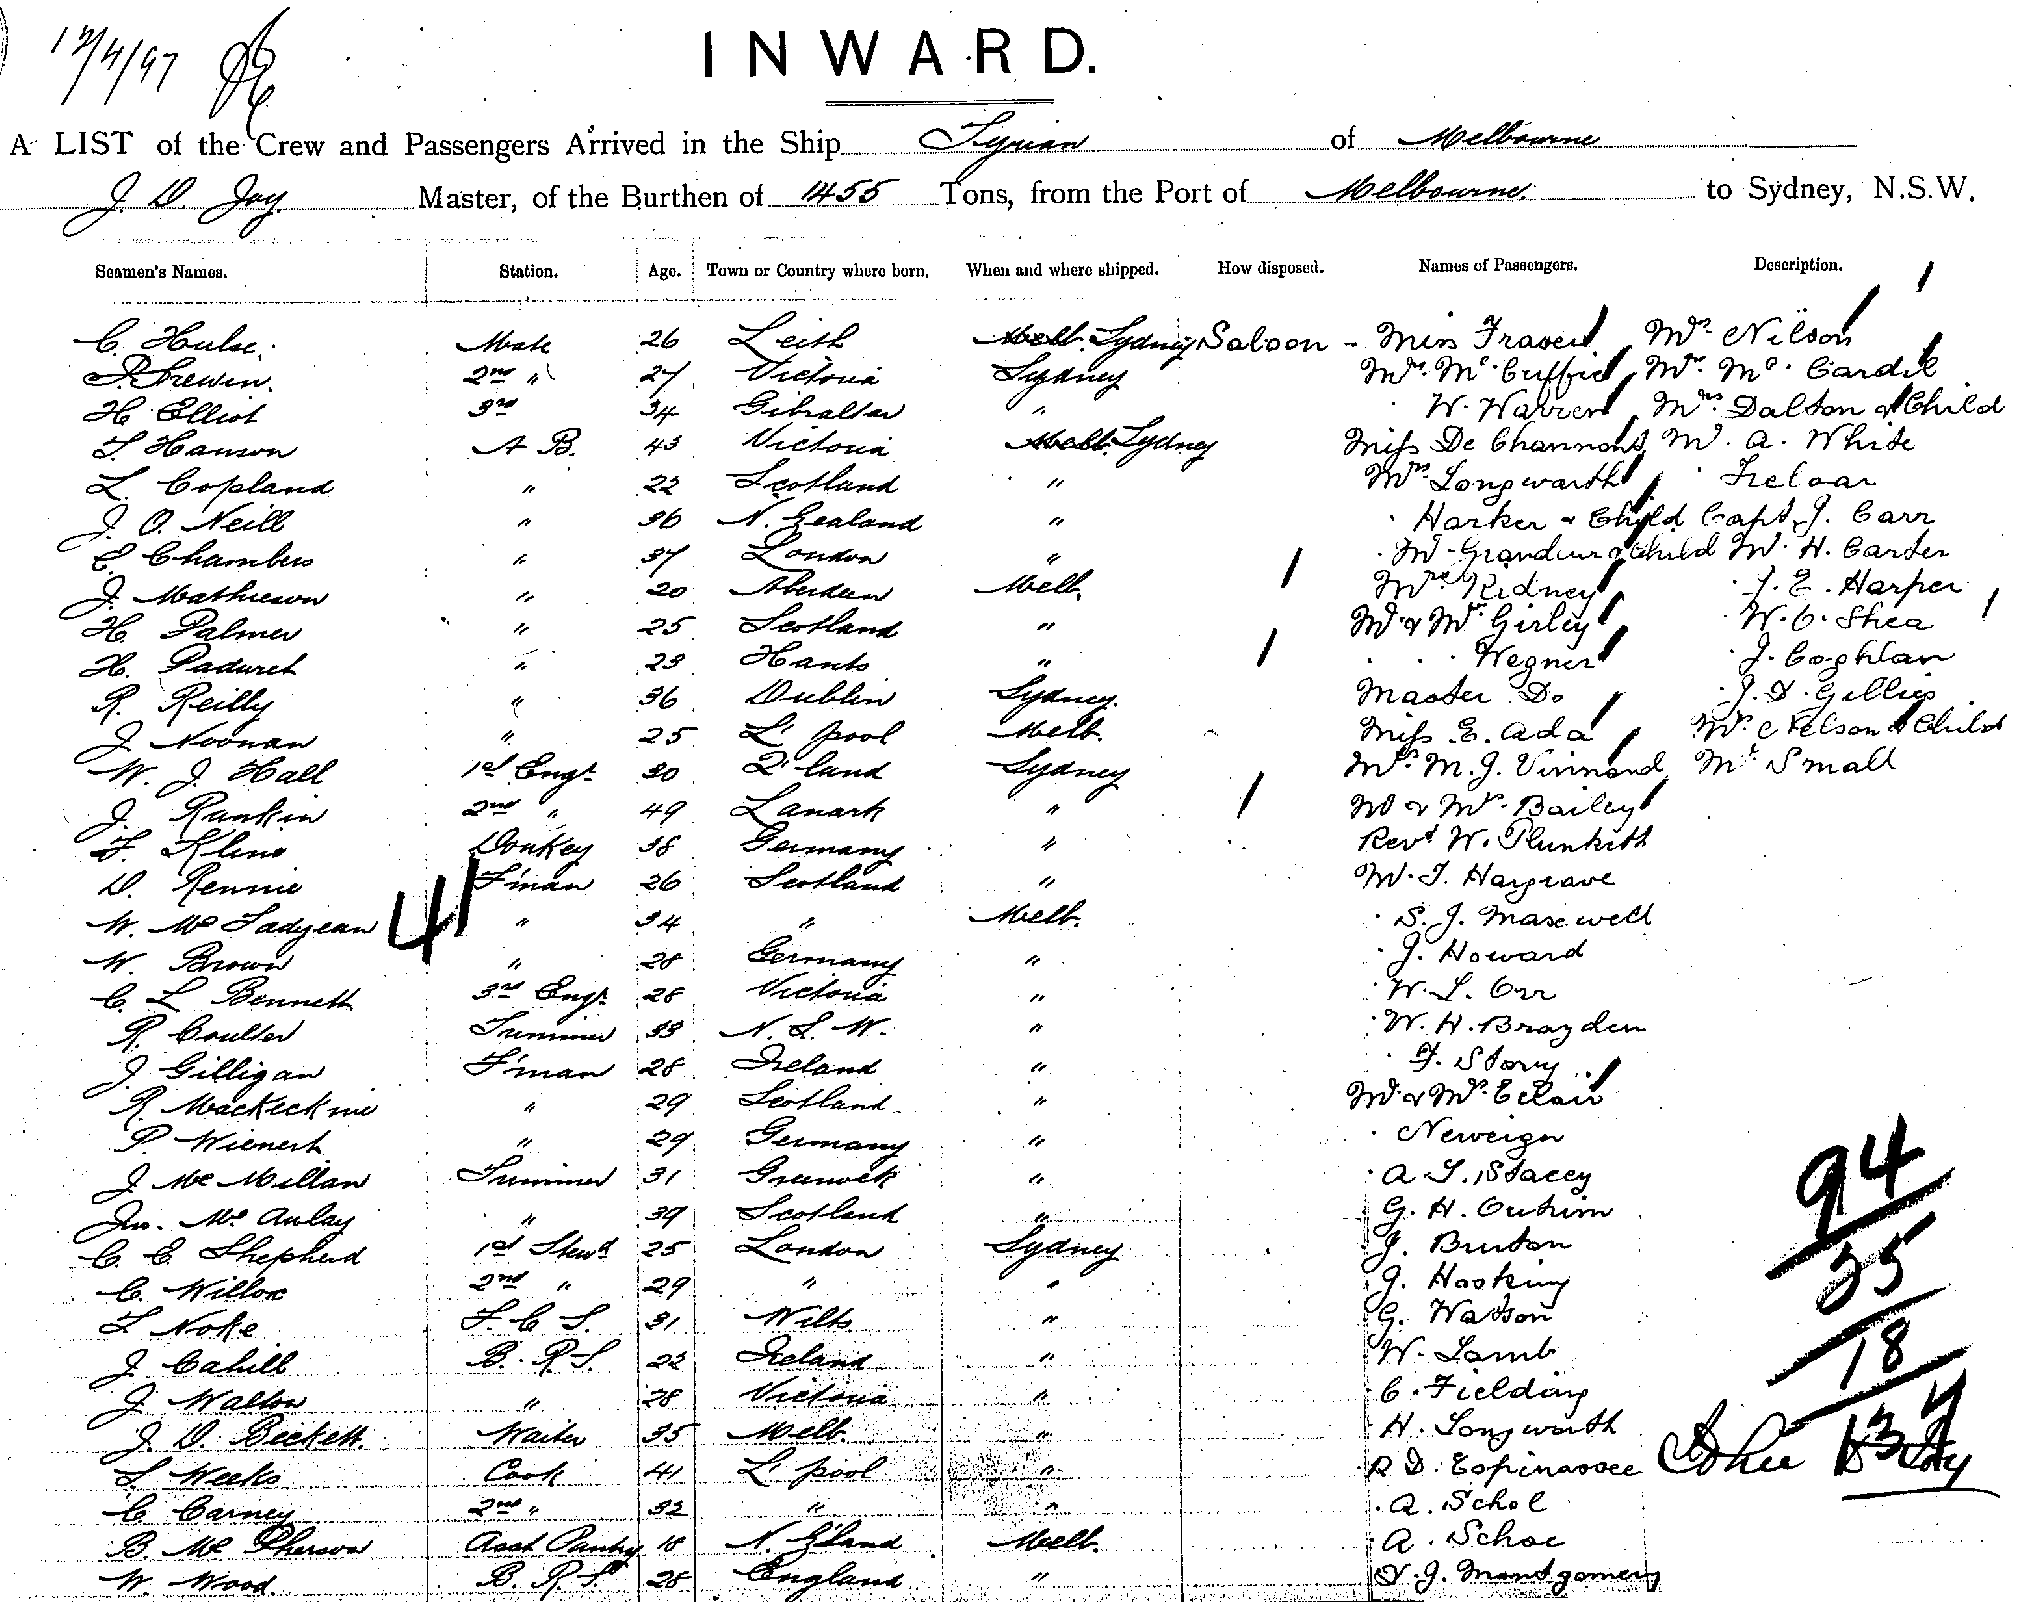 12/4/97
INWARD.
A LIST of the Crew and Passengers Arrived in the Ship Tyrian of Melbourne
J. D. Joy Master, of the Burthen of 1455 Tons, from the Port of Melbourne. to Sydney, N.S.W.
Seamen's Names. Station. Age. Town or Country where born. When and where shipped. How disposed. Names of Passengers. Description.
C. Hulse. Mate 26 Leith Melb. Sydney Saloon - Miss Fraser Mrs Nilson
2nd " 27 Victoria Sydney Mrs. Mc. Guffie Mrs. Mc. Cardil
H. Elliot 3rd 34 Gibraltar " W. Warren Mrs Dalton & Child
Hanson A B. 43 Victoria Melb. Sydney Miss De Channont Mr. A. White
L. Copland " 22 Scotland " Mrs Longworth Treloar
J. O. Neill " 36 N. Zealand " Harker & Child Capt. J. Carr
E. Chambers " 37 London " Child Mr. H. Carter
J. Mathieson " 20 Aberdeen Melb. Mrs Kidney J. E. Harper
H. Palmer " 25 Scotland " Mr & Mrs Girley W. C. Shea
H. " 23 Hants " Wegner J. Coghlan
R. Reilly " 36 Dublin Sydney. Master Do J. D. Gillies
J. Noonan " 25 L'pool Melb. Miss E. Ada Mrs Nelson & Child
W. J. Hall 1st Engr. 30 Q'land Sydney Mrs M. J. Mr Small
J. Rankin 2nd " 49 Lanark " Mr & Mrs. Bailey
F. Kline Donkey 38 Germany " Revd W. Plunkett
D. Rennie F'man 26 Scotland " Mr. T. Hargrave
W. Mc Fadyean 41 " 34 " Melb. S. J. Maxwell
W. Brown " 28 Germany " J. Howard
C. L Bennett 3rd Engr. 28 Victoria " W. L. Orr
R. Coulter Trimmer 33 N. S. W. " W. H. Brayden
J. Gilligan F'man 28 Ireland " F. Story
R. Mackecknie " 29 Scotland " Mr & Mrs
P. Wienert " 29 Germany "
J. Mc Millan Trimmer 31 Greenock " A. L. Stacey
Jno. Mc Aulay " 39 Scotland " G. H.
C. E. Shepherd 1st Stewd 25 London Sydney J. Burton
C. Willox 2nd " 29 " " J. Hosking
Noke F. C. S. 31 Wilts " G. Watson
J. Cahill B. R S. 22 Ireland " W. Lamb
J. Walton " 28 Victoria " C. Fielding
J. D. Beckett Waiter 35 Melb. " H. Longworth
S. Weeks Cook 41 L'pool " R D. Espinassee
C. Carney 2nd " 32 " " A. Schol
B. Mc Pherson Asst Pantry 18 N. Z'land Melb. A.
W. Wood. B. R. S. 28 England " J. Montgomery
94
35
18
John D Joy